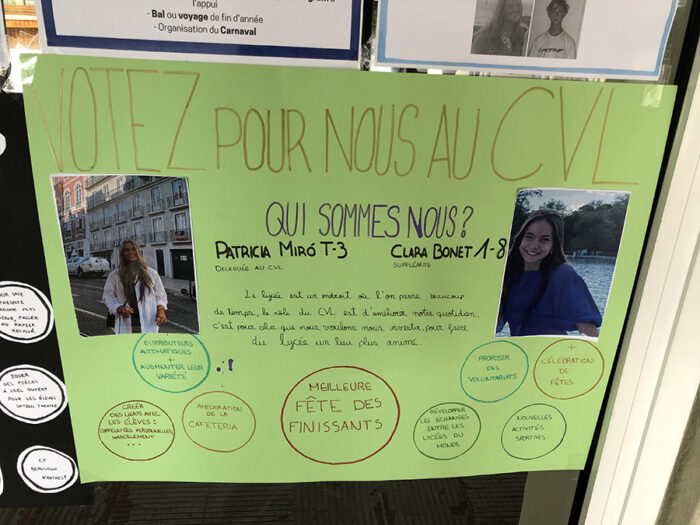 l'appui
- Bal ou voyage de fin d'année
- Organisation du Carnaval
VOTEZ POUR NOUS AU CVL
QUI SOMMES NOUS?
PATRICIA MIRÓ T-3
DELEGUÉE AU CVL
CLARA BONET 1-8
SUPPLÉANTE
Le lycée est un endroit où l'on passe beaucoup
de temps, le rôle du CVL est d'améliorer notre quotidien,
c'est pour cela que nous voulons nous investir, pour faire
du lycée un lieu plus animé.
DISTRIBUTEURS
AUTOMATIQUES
+
AUGMENTER LEUR
VARIÉTÉ
PROPOSER DES
VOLUNTARIATS
+
CÉLÉBRATION DE
FÊTES
CRÉER
DES LIENS AVEC LES
ÉLÈVES :
DIFFICULTÉS PERSONNELLES
HARCÈLEMENT
...
AMÉLIORATION
DE LA
CAFETERIA
MEILLEURE
FÊTE DES
FINISSANTS
DÉVELOPPER
LES ECHANGES
ENTRE LES
LYCÉES DU
MONDE
NOUVELLES
ACTIVITÉS
SPORTIVES
POUR UNE
PRESENCE
PAPIER
RECYCLÉ.
JOUER
DES PIÈCES
À CIEL OUVERT
POUR LES ÉLÈVES
OPTION THÉÂTRE
ET
BEAUCOUP
D'AUTRES!